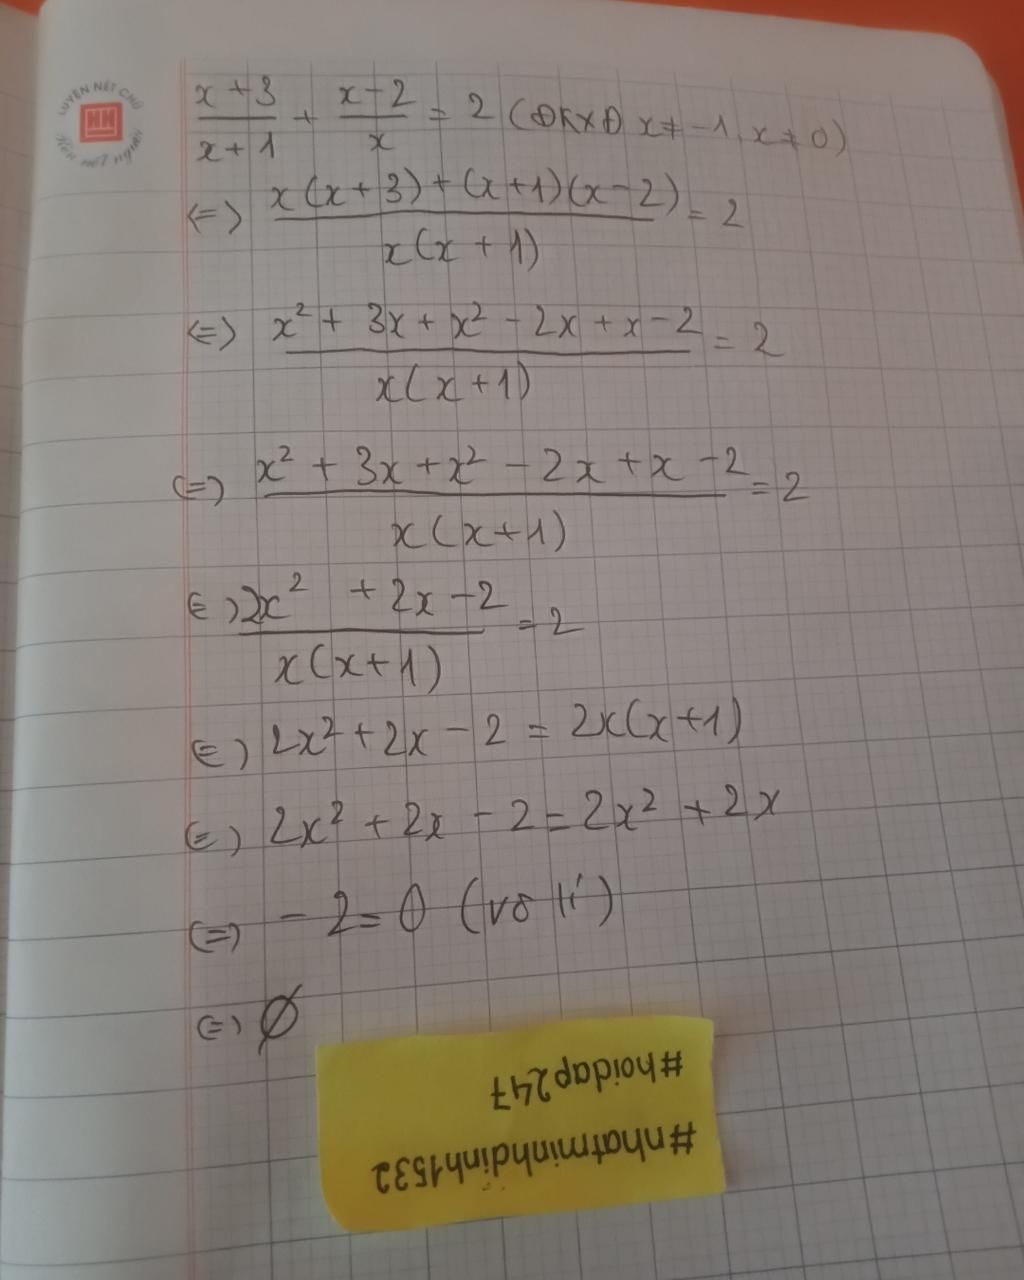 LUYỆN NÉT CHỮ
HH
Rèn nết người
x+3/x+1 + x-2/x = 2 (ĐKXĐ x≠-1, x≠0)
<=> x(x+3)+(x+1)(x-2)/x(x+1) = 2
<=> x²+3x+x²-2x+x-2/x(x+1) = 2
<=> x²+3x+x²-2x+x-2/x(x+1) = 2
<=> 2x² +2x-2/x(x+1) = 2
<=> 2x²+2x-2 = 2x(x+1)
<=> 2x²+2x-2=2x²+2x
<=> -2=0 (vô lí)
<=> ∅
#nhatminhdinh1532
#hoidap247